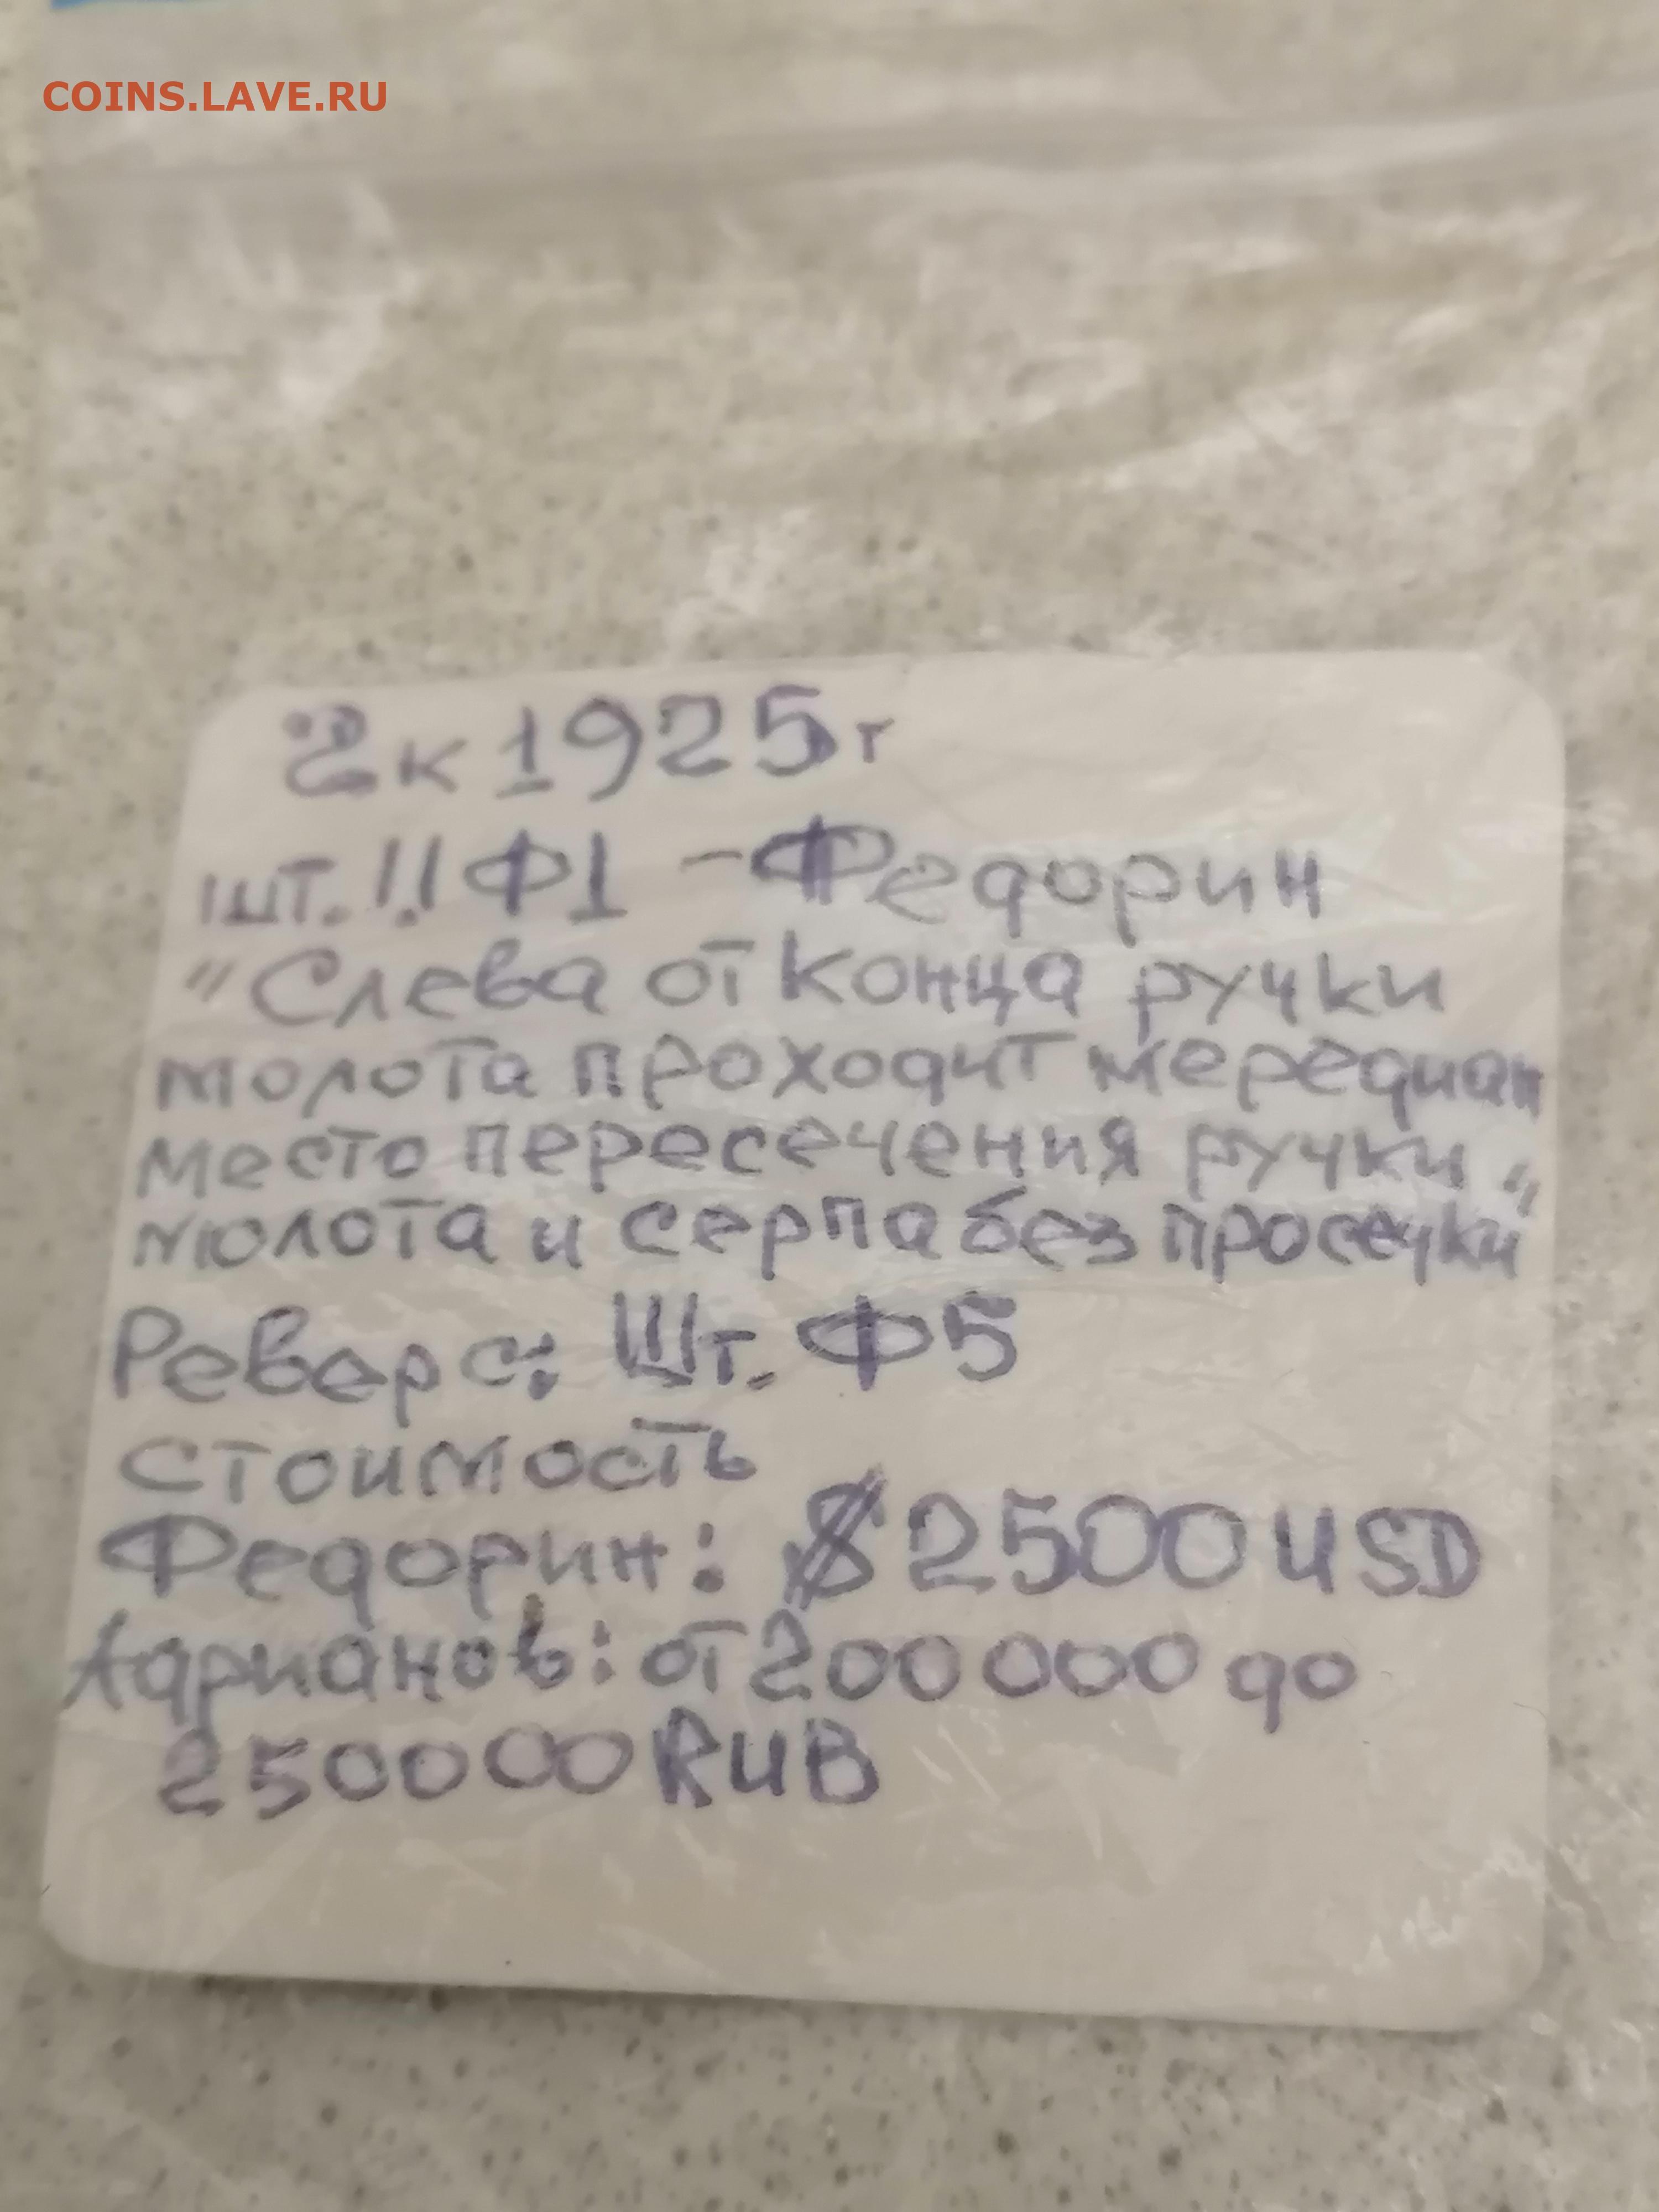 COINS.LAVE.RU
2к 1925г
шт. !.! Ф1 – Федорин
"Слева от конца ручки
молота проходит мередиан
место пересечения ручки
молота и серпа без просечки"
Реверс: Шт. Ф5
стоимость
Федорин: $2500 USD
Адрианов: от 200 000 до
250000 RUB